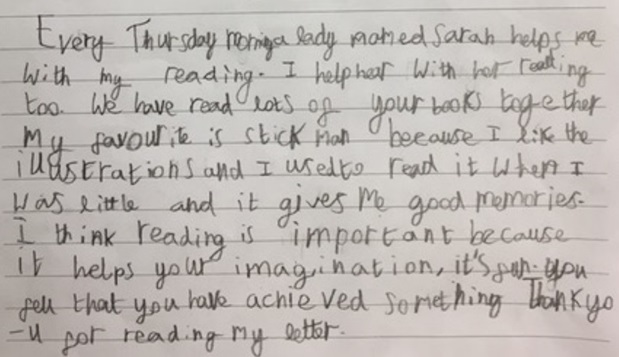 Every Thursday morning a lady named Sarah helps me
with my reading. I help her with her reading
too. We have read lots of your books together
My favourite is stick man because I like the
illustrations and I used to read it when I
was little and it gives me good memories.
I think reading is important because
it helps your imagination, it's fun. you
feel that you have achieved something Thankyo
-u for reading my letter.